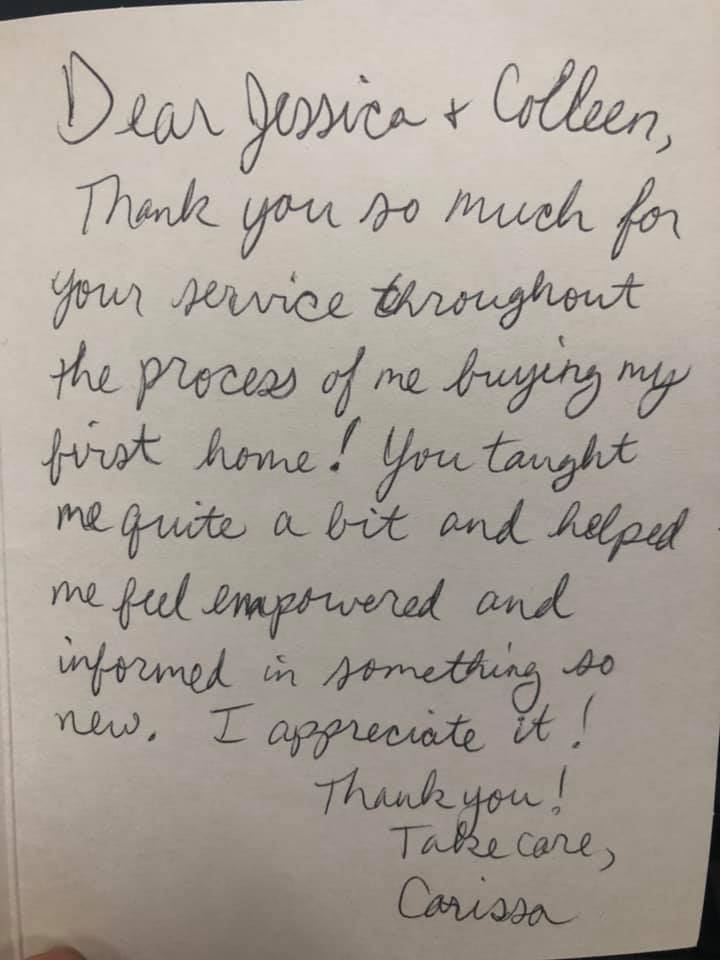 Dear Jessica + Colleen,
Thank you so much for
your service throughout
the process of me buying my
first home! You taught
me quite a bit and helped
me feel empowered and
informed in something so
new. I appreciate it!
Thank you!
Take care,
Carissa